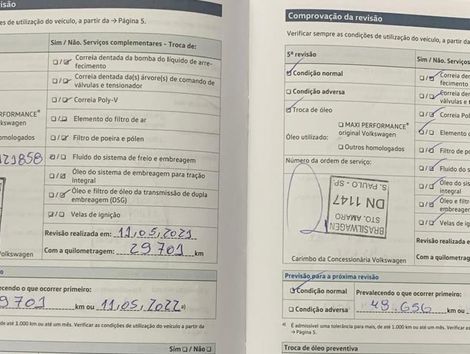 isão
ões de utilização do veículo, a partir da → Página 5.
Sim / Não. Serviços complementares - Troca de:
Correia dentada da bomba do líquido de arre-
fecimento
Correia dentada da(s) árvore(s) de comando de
válvulas e tensionador
Correia Poly-V
PERFORMANCE®
lkswagen
Elemento do filtro de ar
omologados
Filtro de poeira e pólen
121858
Fluido do sistema de freio e embreagem
Óleo do sistema de embreagem para tração
integral
Óleo e filtro de óleo da transmissão de dupla
embreagem (DSG)
Velas de ignição
Revisão realizada em: 11,05,2021
Volkswagen
Com a quilometragem: 29 701 km
alecendo o que ocorrer primeiro:
9701 km ou 11,05,2022 a)
de até 1.000 km ou até um mês. Verificar as condições de utilização do veículo a partir da
Sim / Não
Comprovação da revisão
Verificar sempre as condições de utilização do veículo, a partir da
5ª revisão
Sim / Não. Serviços
Condição normal
Correia den
fecimento
Condição adversa
Correia den
válvulas e t
Troca de óleo
Correia Pol
MAXI PERFORMANCE®
original Volkswagen
Elemento
Óleo utilizado:
Outros homologados
Filtro de po
Número da ordem de serviço:
Fluido do s
Óleo do sis
integral
Óleo e filtr
embreagem
Velas de ig
BRASILWAGEN
STO. AMARO
DN 1147
S. PAULO - SP.
Revisão realizada e
Carimbo da Concessionária Volkswagen
Com a quilometrag
Previsão para a próxima revisão
Condição normal
Prevalecendo o que ocorrer primeiro:
Condição adversa
49.656 km ou
a) É admissível uma tolerância para mais, de até 1.000 km ou até um mês. Verificar as con
→ Página 5.
Troca de óleo preventiva